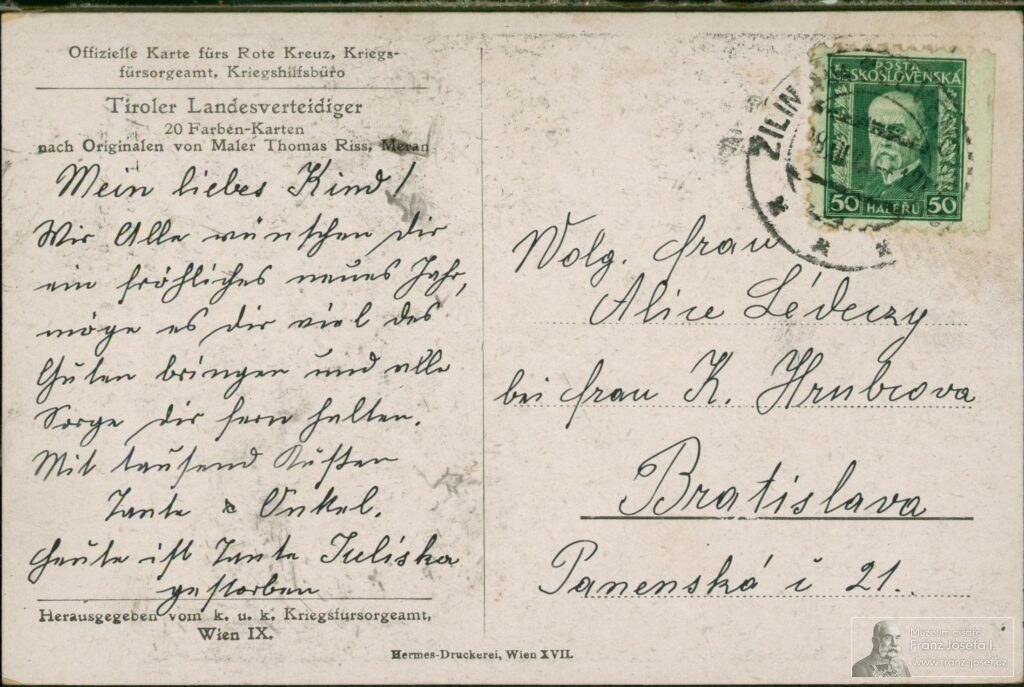 Offizielle Karte fürs Rote Kreuz, Kriegs-
fürsorgeamt, Kriegshilfsbüro
Tiroler Landesverteidiger
20 Farben-Karten
nach Originalen von Maler Thomas Riss, Meran
Mein liebes Kind!
Wir Alle wünschen dir
ein fröhliches neues Jahr,
möge es dir viel des
Guten bringen und alle
Sorge dir fern halten.
Mit tausend Küßen
Tante & Onkel.
Heute ist Tante Juliska
gestorben
Herausgegeben vom k. u. k. Kriegsfürsorgeamt,
Wien IX.
Hermes-Druckerei, Wien XVII.
POSTA
ČESKOSLOVENSKÁ
50 HALÉŘŮ 50
ŽILIN
Wolg. Frau
Alice Lédeczy
bei Frau K. Hrubcova
Bratislava
Panenská u 21.
Muzeum císaře
Franz Josefa I.
www.franz-josef.cz